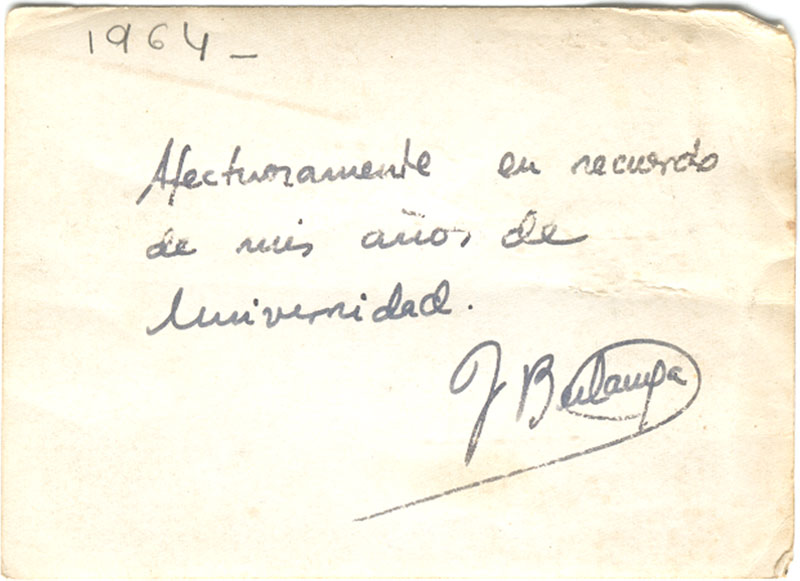 1964_
Afectuosamente en recuerdo
de mis años de
Universidad.
J Berlanga